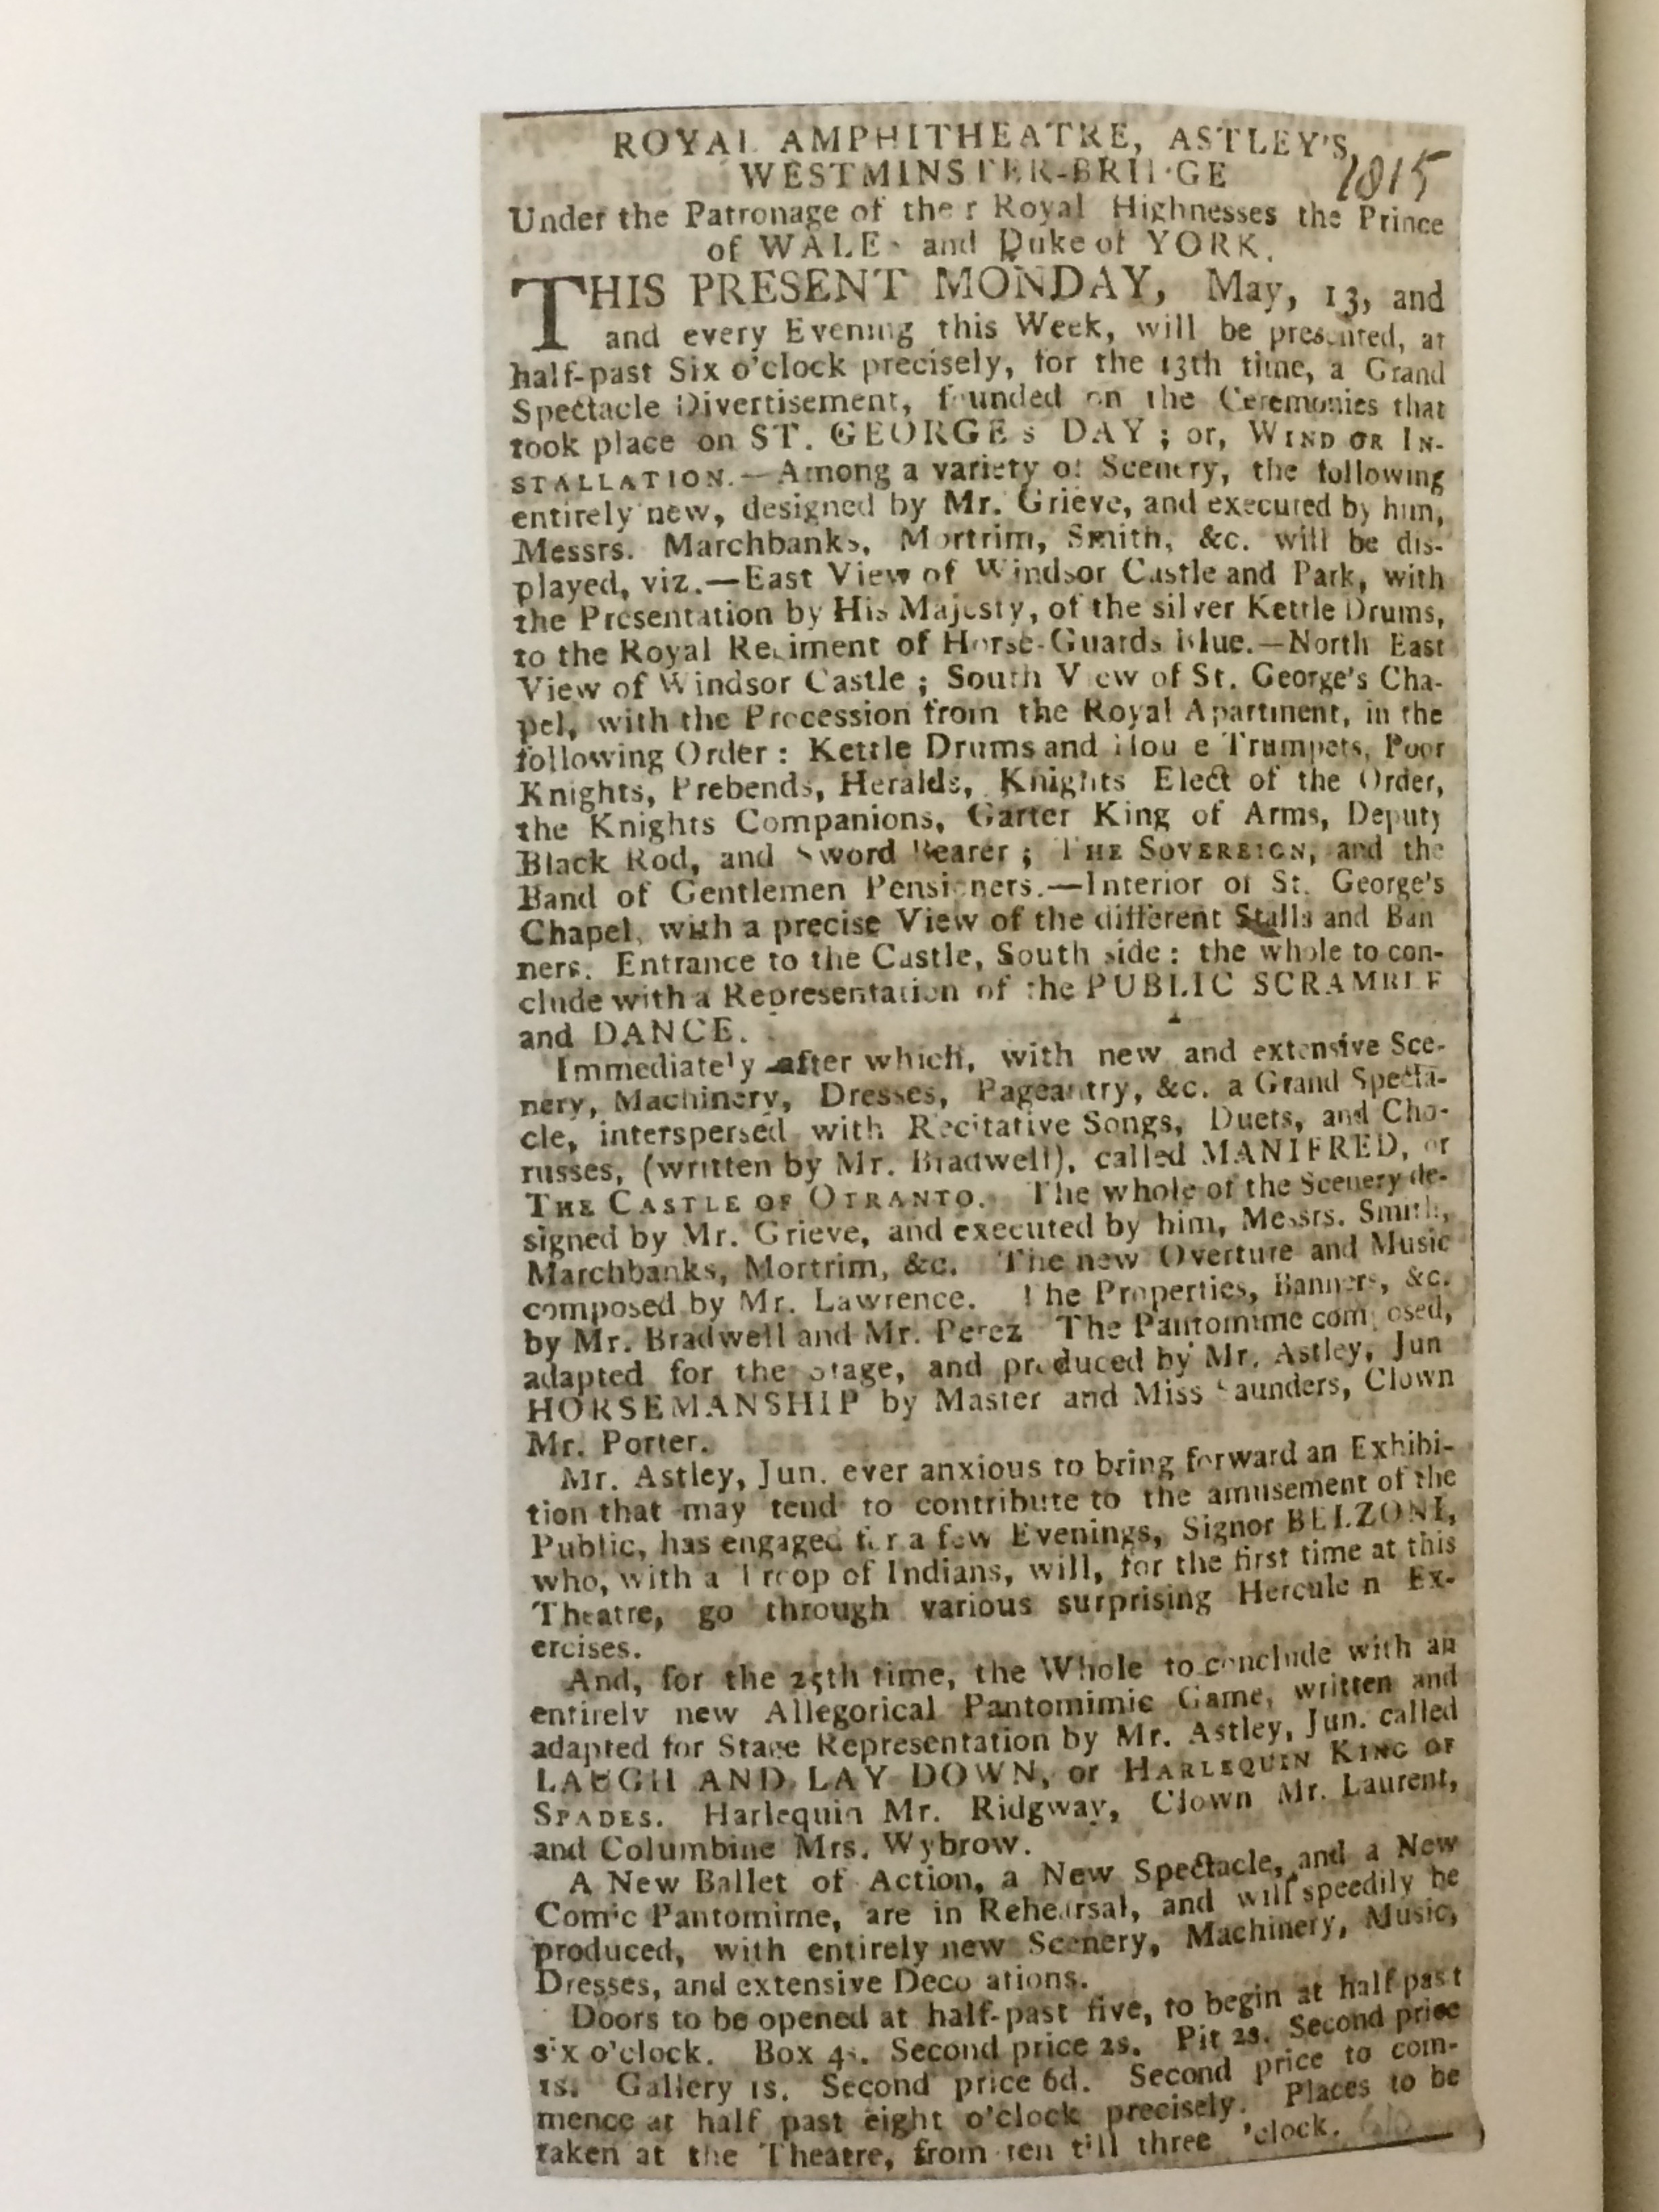 ROYAL AMPHITHEATRE, ASTLEY'S,
1815
WESTMINSTER-BRIDGE
Under the Patronage of the r Royal Highnesses the Prince
of WALE and Duke of YORK.
THIS PRESENT MONDAY, May, 13, and
and every Evening this Week, will be presented, at
half-past Six o'clock precisely, for the 13th time, a Grand
Spectacle Divertisement, founded on the Ceremonies that
took place on ST. GEORGE s DAY; or, WIND OR IN-
STALLATION.—Among a variety of Scenery, the following
entirely new, designed by Mr. Grieve, and executed by him,
Messrs. Marchbanks, Mortrim, Smith, &c. will be dis-
played, viz.—East View of Windsor Castle and Park, with
the Presentation by His Majesty, of the silver Kettle Drums,
to the Royal Regiment of Horse-Guards Blue.—North East
View of Windsor Castle; South View of St. George's Cha-
pel, with the Procession from the Royal Apartment, in the
following Order: Kettle Drums and Hou e Trumpets, Poor
Knights, Prebends, Heralds, Knights Elect of the Order,
the Knights Companions, Garter King of Arms, Deputy
Black Rod, and Sword Bearer; THE SOVEREIGN, and the
Band of Gentlemen Pensioners.—Interior of St. George's
Chapel, with a precise View of the different Stalls and Ban
ners. Entrance to the Castle, South side: the whole to con-
clude with a Representation of the PUBLIC SCRAMBLE
and DANCE.
Immediately after which, with new and extensive Sce-
nery, Machinery, Dresses, Pageantry, &c. a Grand Specta-
cle, interspersed with Recitative Songs, Duets, and Cho-
russes, (written by Mr. Bradwell), called MANIFRED, or
THE CASTLE OF OTRANTO. The whole of the Scenery de-
signed by Mr. Grieve, and executed by him, Messrs. Smith,
Marchbanks, Mortrim, &c. The new Overture and Music
composed by Mr. Lawrence. The Properties, Banners, &c.
by Mr. Bradwell and Mr. Perez The Pantomime composed,
adapted for the Stage, and produced by Mr. Astley, Jun
HORSEMANSHIP by Master and Miss Saunders, Clown
Mr. Porter.
Mr. Astley, Jun. ever anxious to bring forward an Exhibi-
tion that may tend to contribute to the amusement of the
Public, has engaged for a few Evenings, Signor BELZONI,
who, with a Troop of Indians, will, for the first time at this
Theatre, go through various surprising Hercule n Ex-
ercises.
And, for the 25th time, the Whole to conclude with an
entirely new Allegorical Pantomimic Game, written and
adapted for Stage Representation by Mr. Astley, Jun. called
LAUGH AND LAY DOWN, or HARLEQUIN KING OF
SPADES. Harlequin Mr. Ridgway, Clown Mr. Laurent,
and Columbine Mrs. Wybrow.
A New Ballet of Action, a New Spectacle, and a New
Comic Pantomime, are in Rehearsal, and will speedily be
produced, with entirely new Scenery, Machinery, Music,
Dresses, and extensive Deco ations.
Doors to be opened at half-past five, to begin at half past
six o'clock. Box 4s. Second price 2s. Pit 2s. Second price
1s. Gallery 1s. Second price 6d. Second price to com-
mence at half past eight o'clock precisely. Places to be
taken at the Theatre, from ten till three 'clock.